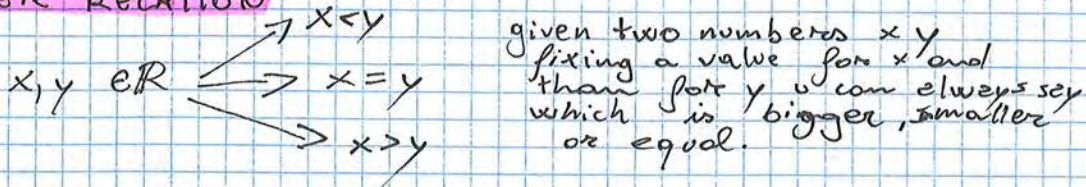 RELATION
x<y
given two numbers x y
fixing a value for x and
x, y ∈ ℝ x=y
than for y u can always say
which is bigger, smaller
x>y
or equal.